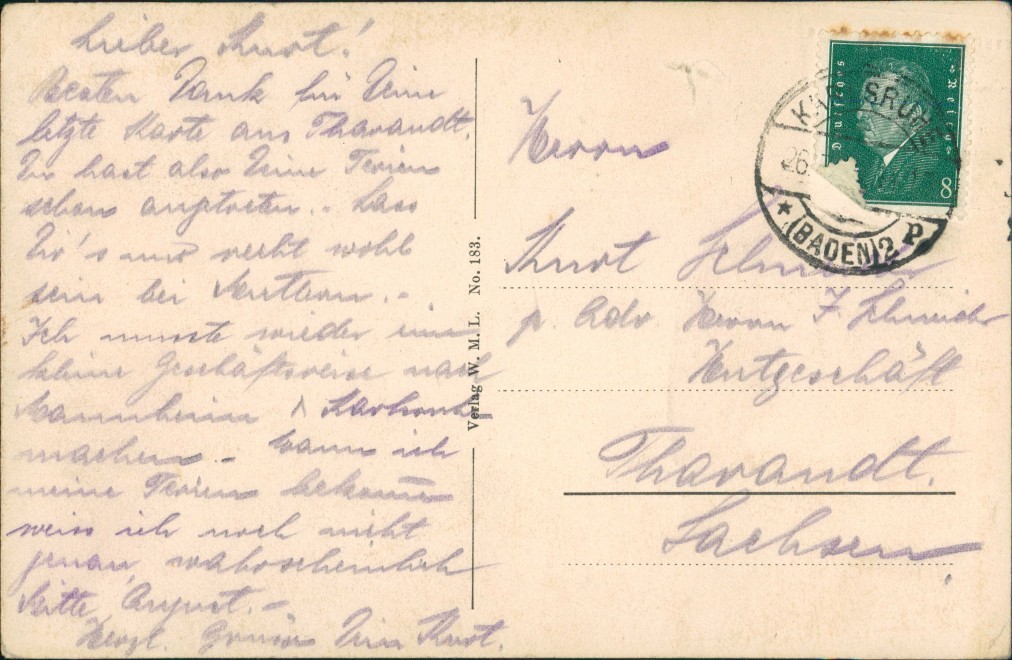 Lieber Kurt!
Besten Dank für Deine
letzte Karte aus Tharandt.
Du hast also Deine Ferien
schon angetreten. - Lass
Dir's nur recht wohl
sein bei Muttern. -
Ich musste wieder eine
kleine Geschäftsreise nach
Mannheim Karlsruhe
machen - Wann ich
meine Ferien bekomme
weiss ich noch nicht
genau, wahrscheinlich
Mitte August. -
Herzl. Grüsse Dein Kurt.
Verlag W. M. L. No. 183.
Deutsches Reich
8
KARLSRUHE
26.
* (BADEN) 2 P
Herrn
Kurt Schneider
p. Adr. Herrn F. Schneider
Hutgeschäft
Tharandt.
Sachsen